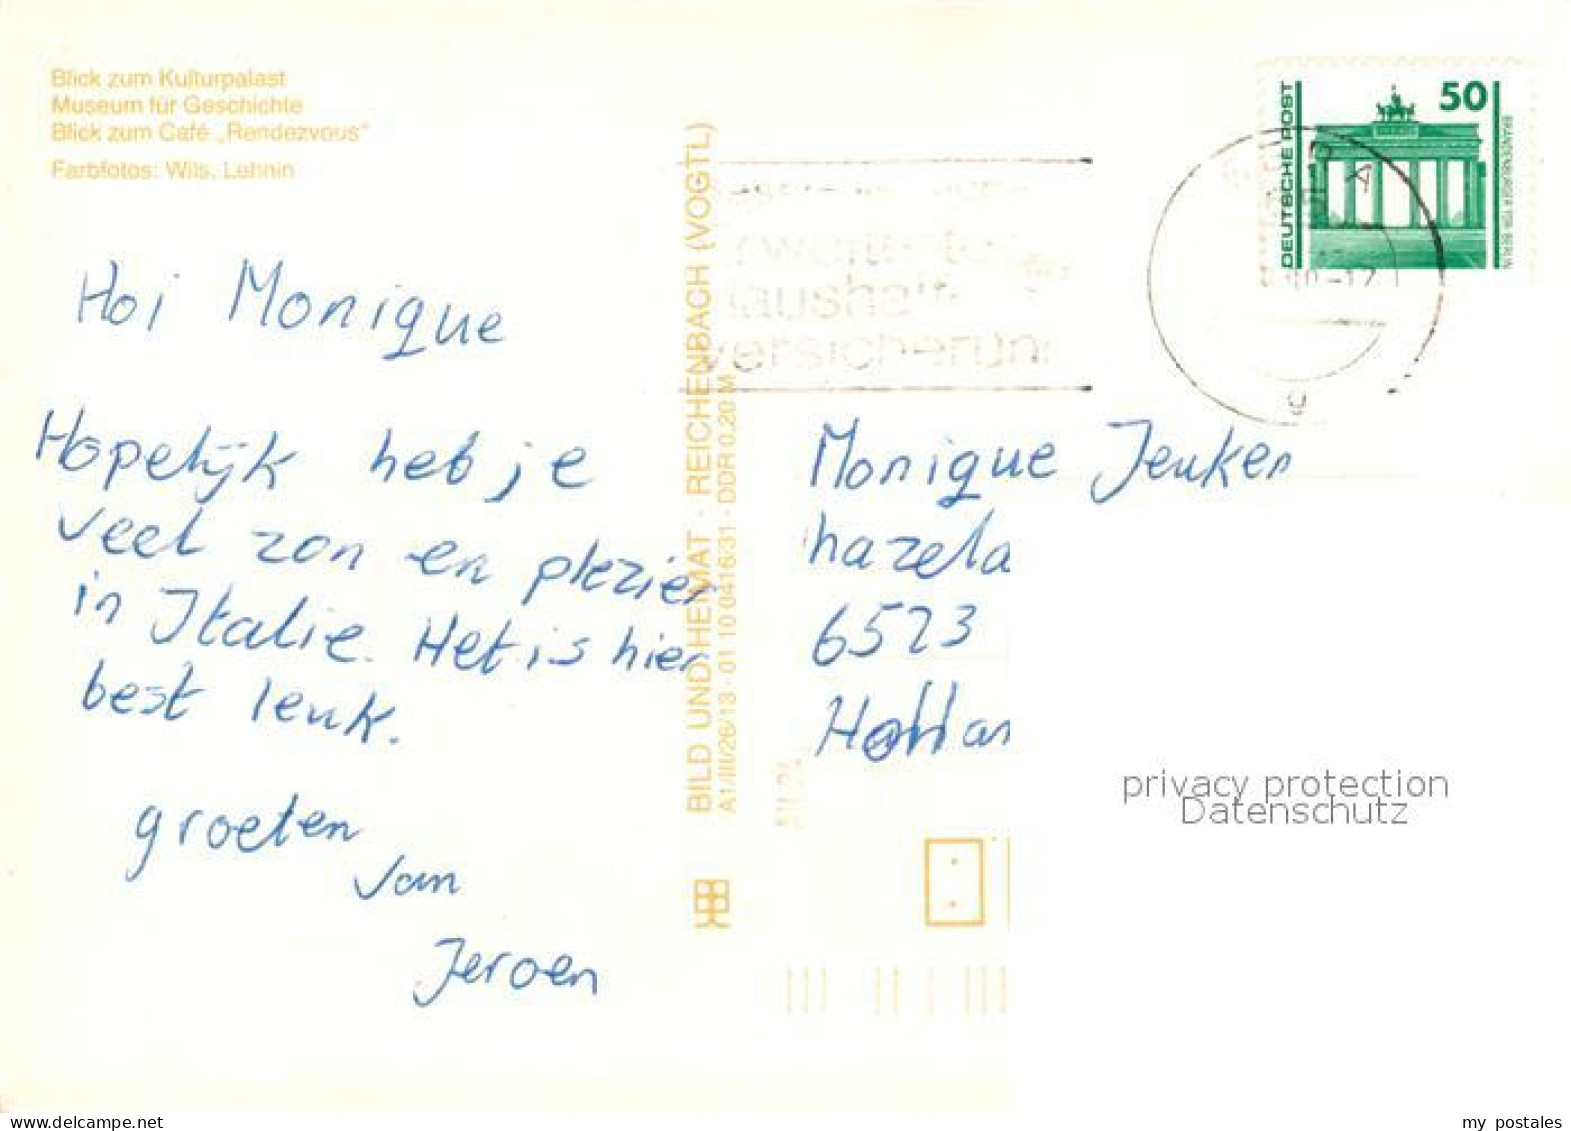 Blick zum Kulturpalast
Museum für Geschichte
Blick zum Café „Rendezvous"
Farbfotos: Wils, Lehnin
Hoi Monique
Hopelijk heb je
veel zon en plezier
in Italie. Het is hier
best leuk.
groeten
van
Jeroen
BILD UND HEIMAT · REICHENBACH (VOGTL)
A1/III/26/13 · 01 10 0416/31 · DDR 0,20 M
DEUTSCHE POST
50
BRANDENBURGER TOR BERLIN
Haushalt-
versicherun
Monique Jeuken
hazela
6523
Hollan
privacy protection
Datenschutz
my postales